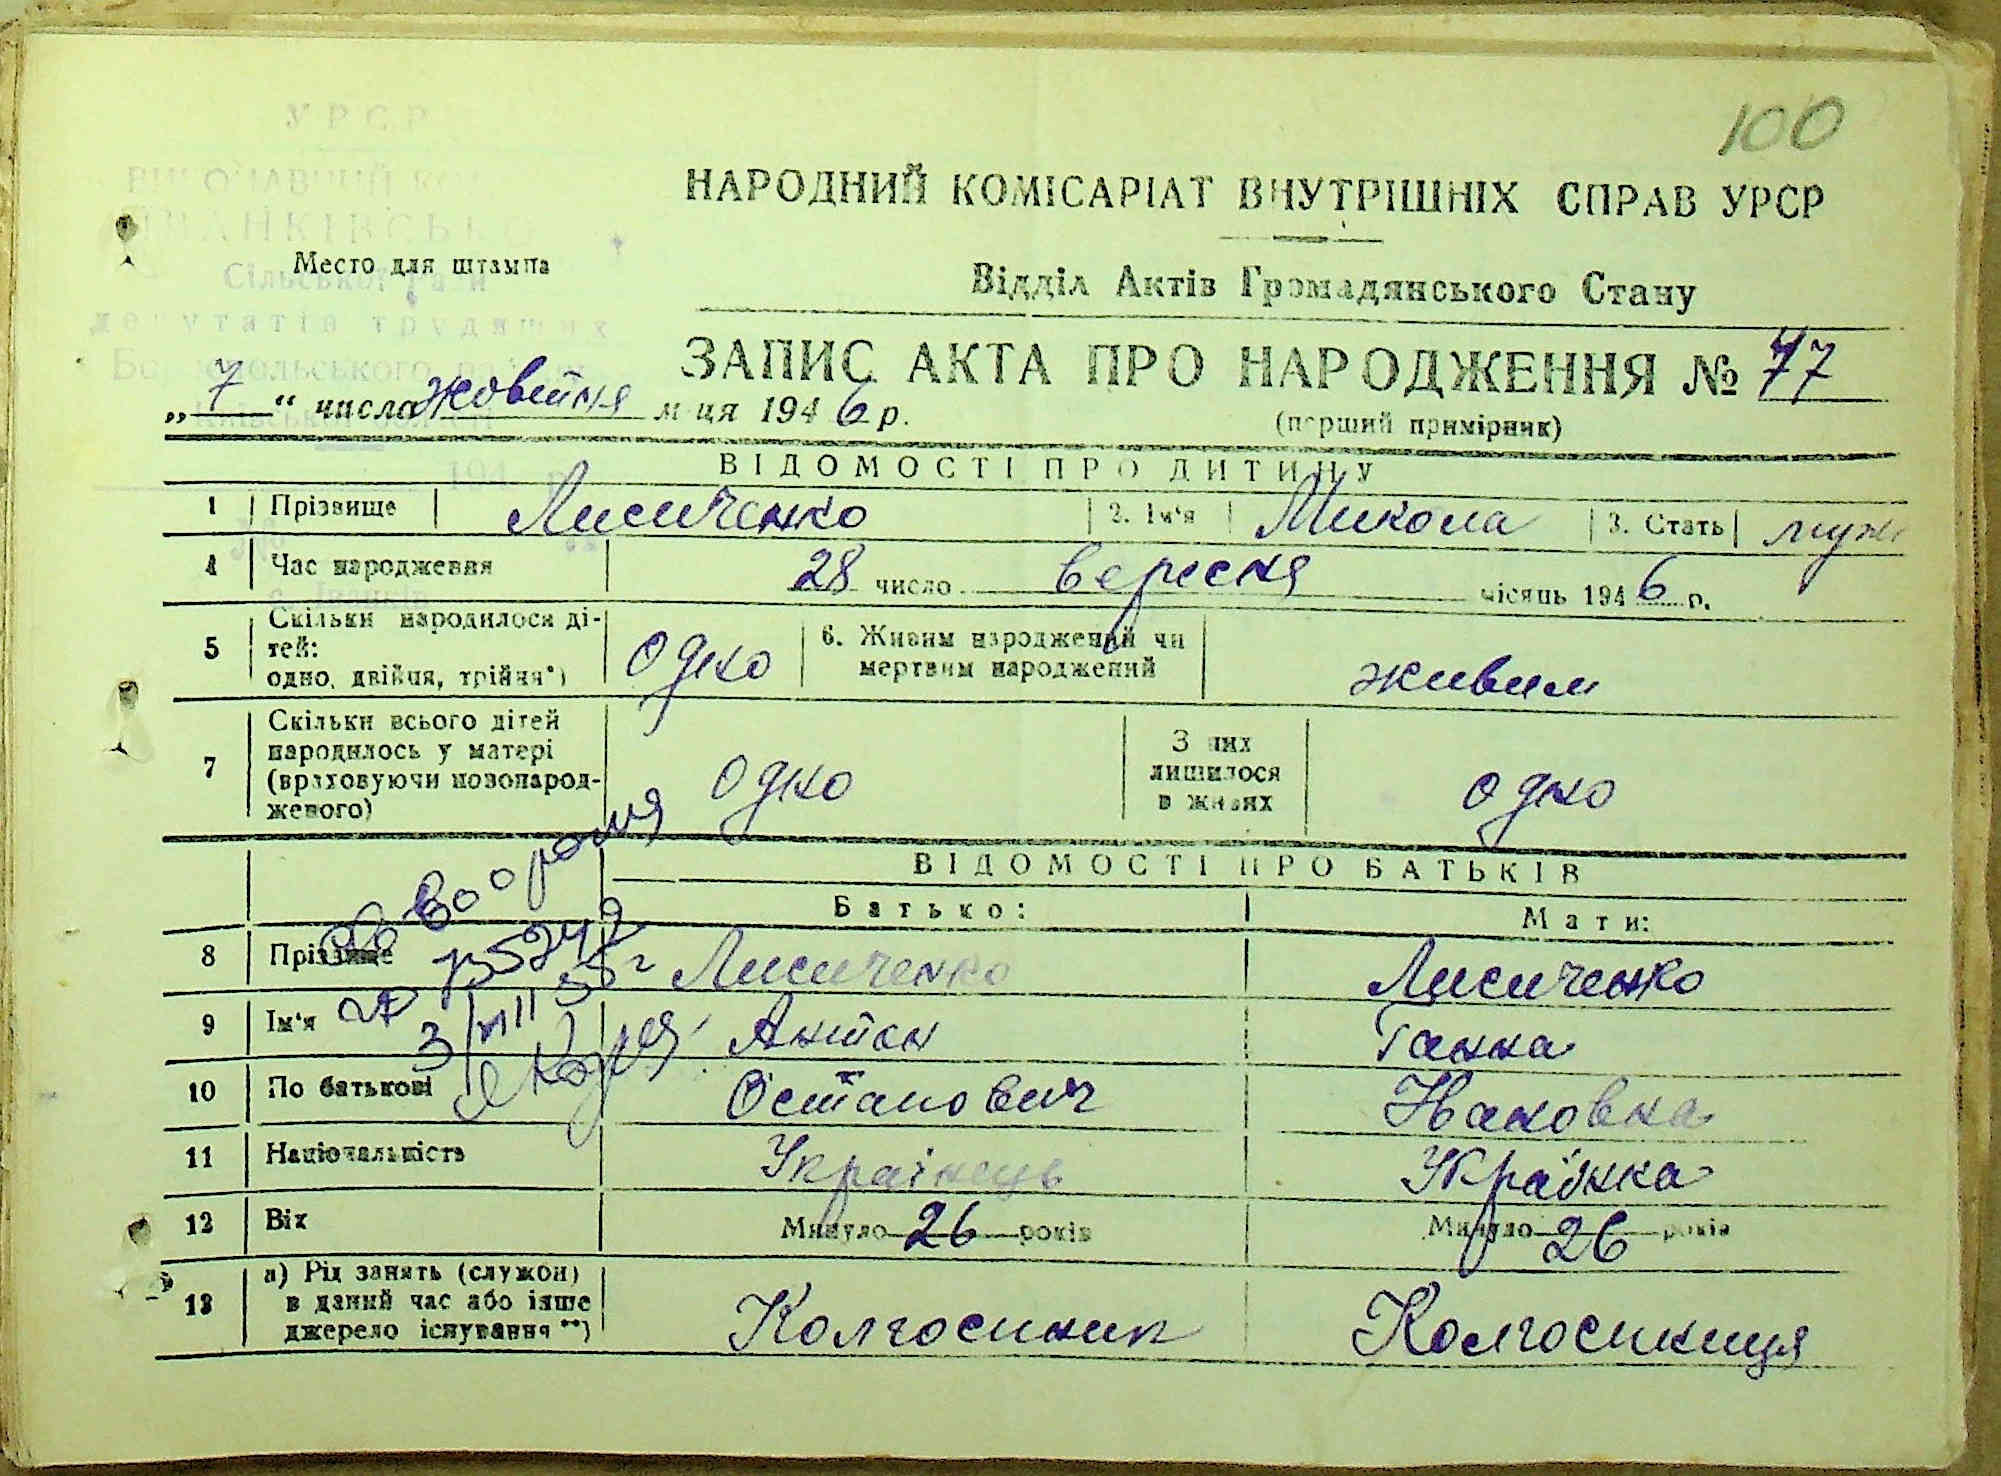 100
УРСР
ВИКОНАВЧИЙ
ІВАНКІВСЬКО
Сільської Ради
депутатів трудящих
Бориспольського району
Київської області
НАРОДНИЙ КОМІСАРІАТ ВНУТРІШНІХ СПРАВ УРСР
Место для штампа
Відділ Актів Громадянського Стану
ЗАПИС АКТА ПРО НАРОДЖЕННЯ № 77
„7“ числа жовтня м-ця 1946 р.
(перший примірник)
ВІДОМОСТІ ПРО ДИТИНУ
1 Прізвище Лисиченко 2. Ім'я Микола 3. Стать муж
4 Час народження 28 число вересня місяць 1946 р.
5 Скільки народилося ді-
тей:
одно, двійня, трійня*)
одно
6. Живим народжений чи
мертвим народжений
живим
7 Скільки всього дітей
народилось у матері
(враховуючи новонарод-
женого)
одно
З них
лишилося
в живих
одно
ВІДОМОСТІ ПРО БАТЬКІВ
Батько: Мати:
8 Прізвище Лисиченко Лисиченко
9 Ім'я Антон Ганна
10 По батькові Остапович Івановна
11 Національність Українець Українка
12 Вік Минуло 26 років Минуло 26 років
13 а) Рід занять (служби)
в даний час або інше
джерело існування **)
Колгоспник Колгоспниця